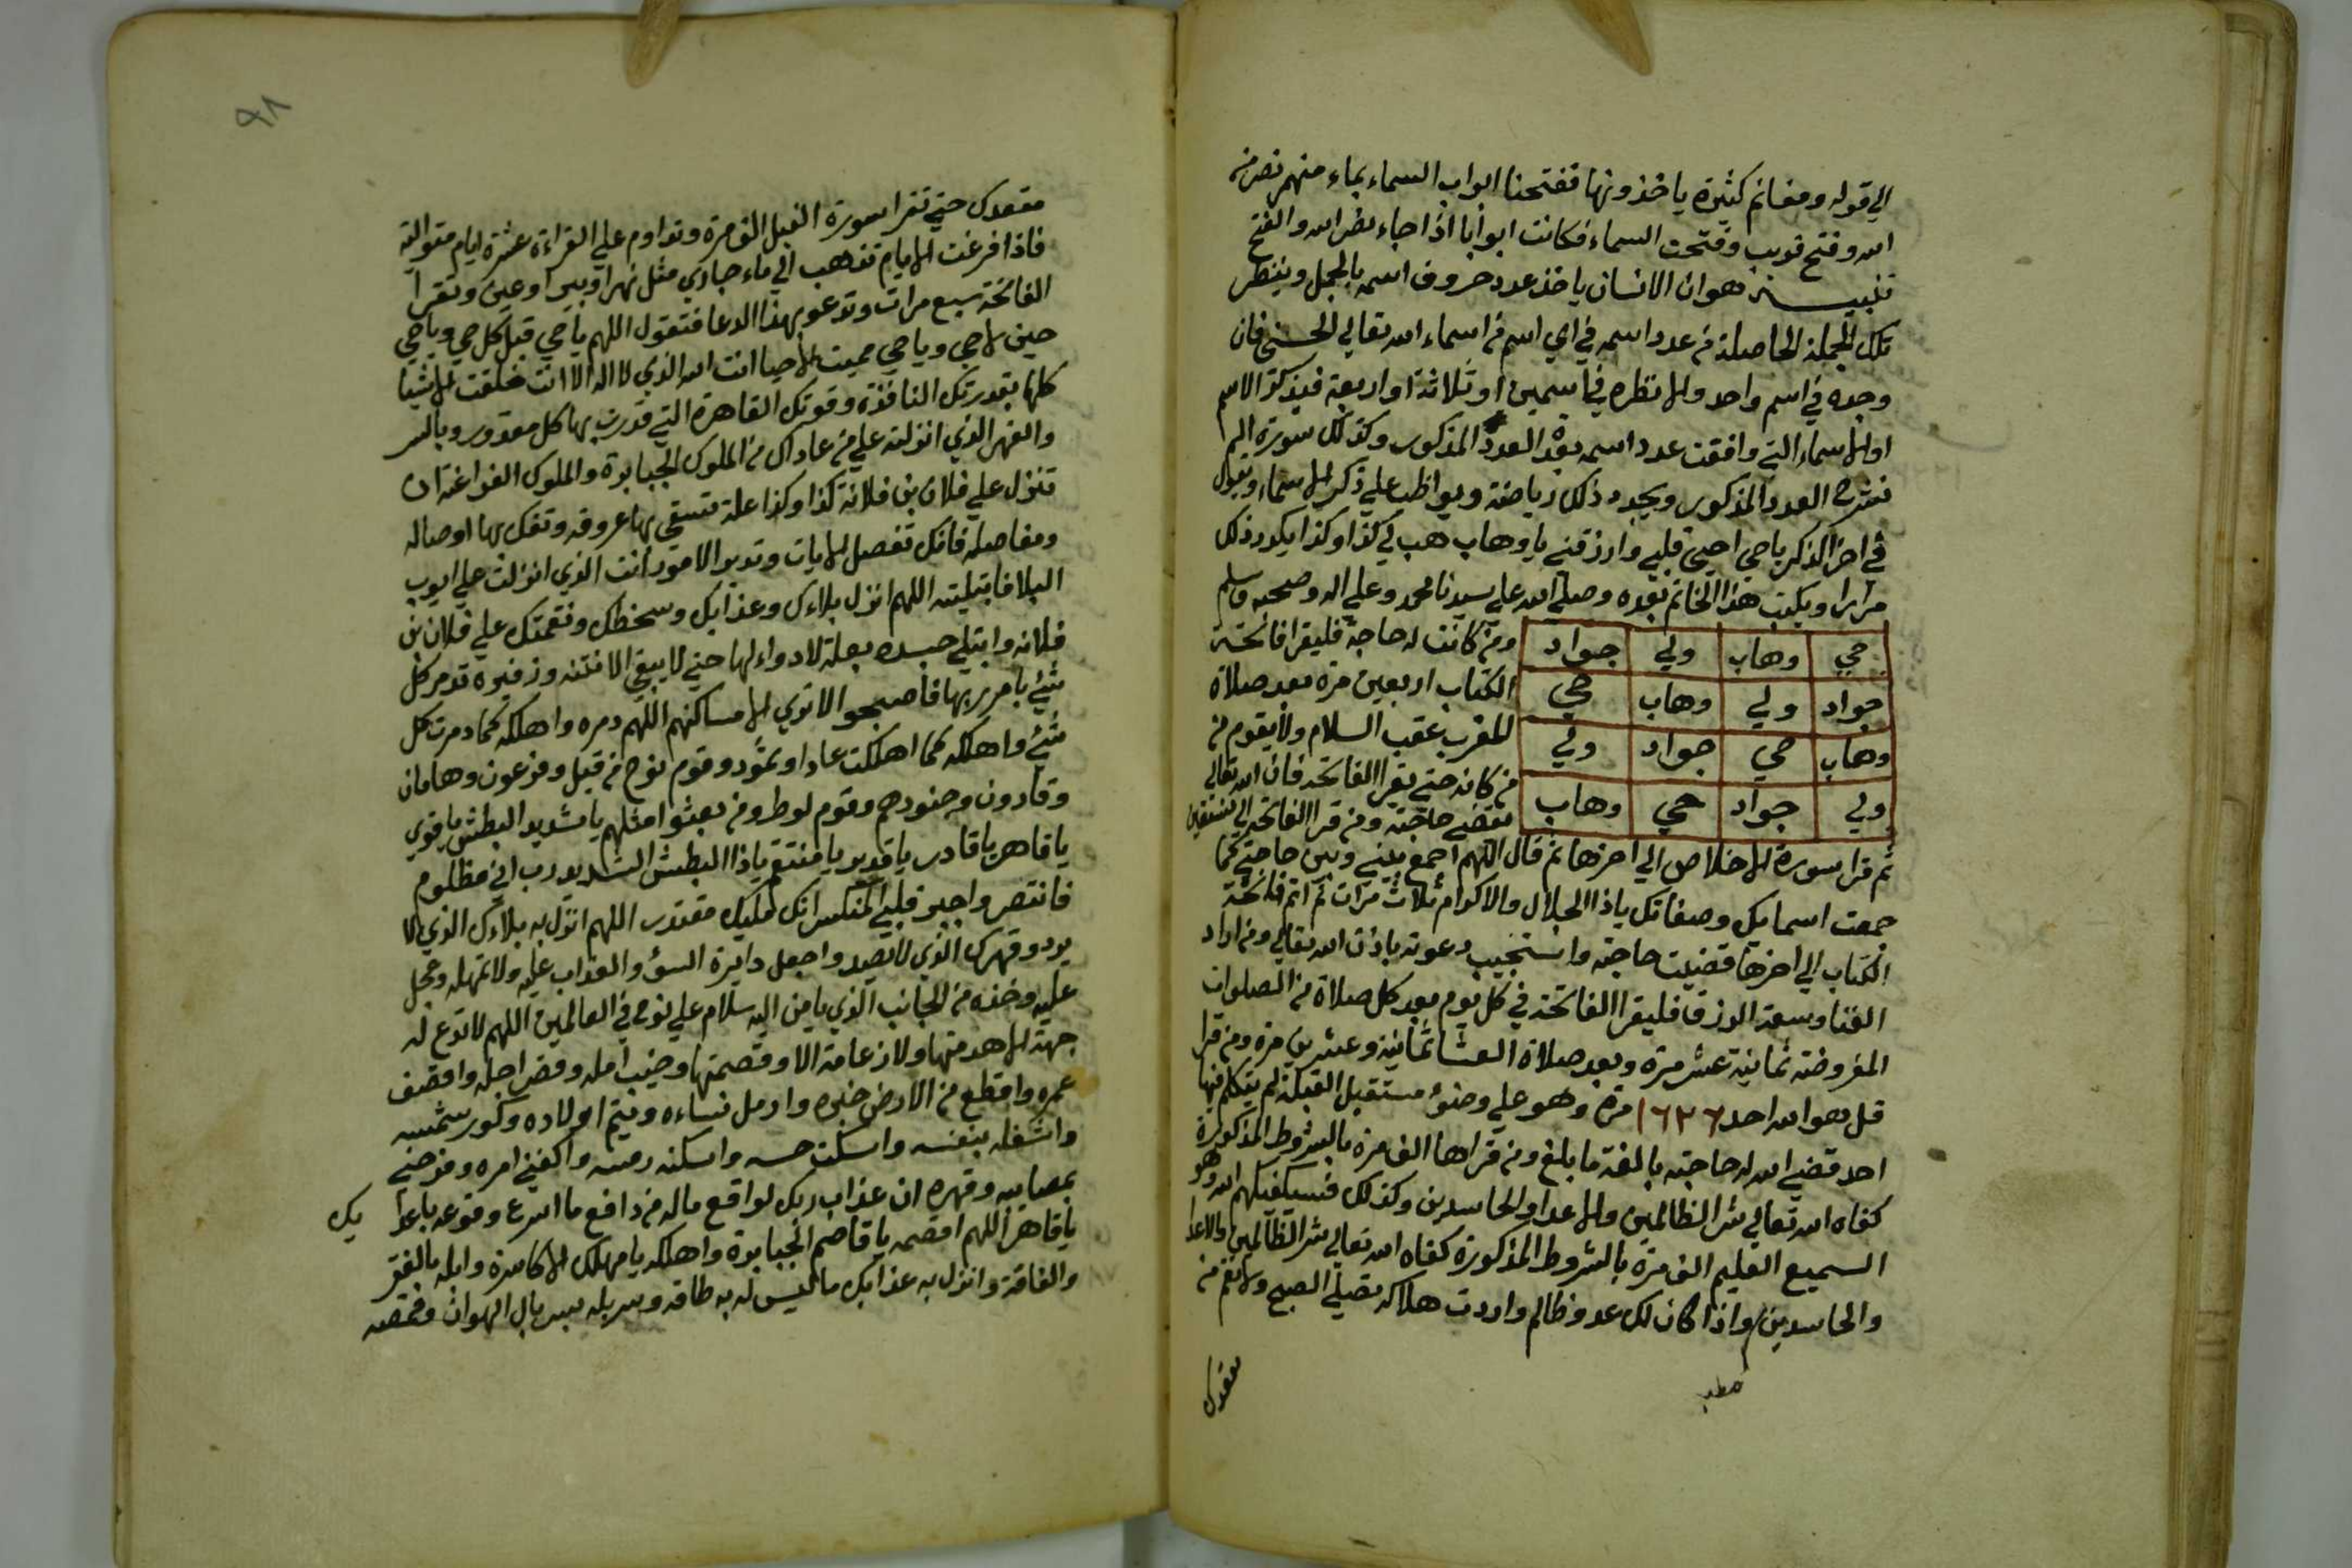 الي قوله ومغانم كثيرة ياخذونها ففتحنا ابواب السماء بماء منهمر نصر من
الله وفتح قريب وفتحت السماء فكانت ابوابا اذا جاء نصر الله والفتح
هو ان الانسان ياخذ عدد حروف اسمه بالجمل وينظر
تلك الجملة الحاصلة من عدد اسمه في اي اسم من اسماء الله تعالي الحسني فان
وجده في اسم واحد والا نظره في اسمين او ثلاثة او اربعة فيذكر الاسم
او الاسماء التي وافقت عدد اسمه بعد العدد المذكور وكذلك سورة الم
نشرح العدد المذكور ويجدد ذلك رياضة ويواظب علي ذكر الاسماء ويقول
في اخر الذكر يا حي احيي قلبي وارزقني يا وهاب هب لي كذا وكذا يكرر ذلك
مرارا ويكتب هذا الخاتم بعده وصلي الله علي سيدنا محمد وعلي اله وصحبه وسلم
حي وهاب ولي جواد
جواد ولي وهاب حي
وهاب حي جواد ولي
ولي جواد حي وهاب
ومن كانت له حاجة فليقرا فاتحة
الكتاب اربعين مرة بعد صلاة
المغرب عقب السلام ولا يقوم من
مكانه حتي يقرا الفاتحة فان الله تعالي
يقضي حاجته ومن قرا الفاتحة الي نستعين
ثم قرا سورة الاخلاص الي اخرها ثم قال اللهم اجمع بيني وبين حاجتي كما
جمعت اسمايك وصفاتك ياذا الجلال والاكرام ثلاث مرات ثم اتم فاتحة
الكتاب الي اخرها قضيت حاجته واستجيب دعوته باذن الله تعالي ومن اراد
الغنا وسعة الرزق فليقرا الفاتحة في كل يوم بعد كل صلاة من الصلوات
المفروضة ثمانية عشر مرة وبعد صلاة العشا ثمانية وعشرين مرة ومن قرا
قل هو الله احد ١٦٢٦ مرة وهو علي وضوء مستقبل القبلة لم يتكلم فيها
احد قضي الله له حاجته بالغة ما بلغ ومن قراها الف مرة بالشروط المذكورة
كفاه الله تعالي شر الظالمين والاعدا والحاسدين وكذلك فسيكفيكهم الله وهو
السميع العليم الف مرة بالشروط المذكورة كفاه الله تعالي شر الظالمين والاعدا
والحاسدين واذا كان لك عدو ظالم واردت هلاكه تصلي الصبح ولا تقم من
مقعدك
٩٨
مقعدك حتي تقرا سورة الفيل الف مرة وتداوم علي القراءة عشرة ايام متوالية
فاذا فرغت الايام تذهب الي ماء جاري مثل نهر او بير او عين وتقرا
الفاتحة سبع مرات وتدعو بهذا الدعا فتقول اللهم يا حي قبل كل حي ويا حي
حين لا حي ويا حي مميت الاحيا انت الله الذي لا اله الا انت خلقت الاشيا
كلها بقدرتك النافذة وقوتك القاهرة التي قدرت بها كل مقدور وبالسر
والقهر الذي انزلته علي من عاداك من الملوك الجبابرة والملوك الفراعنة ان
تنزل علي فلان بن فلانة كذا وكذا علة تسقي بها عروقه وتفك بها اوصاله
ومفاصله فانك تفصل الايات وتدبر الامور انت الذي انزلت علي ايوب
البلا فابتليته اللهم انزل بلاءك وعذابك وسخطك ونقمتك علي فلان بن
فلانه وابتلي جسده بعلة لا دواء لها حتي لا يبقي الا نتنه وزفيره تدمر كل
شئ بامر ربها فاصبحوا لا تري الا مساكنهم اللهم دمره واهلكه كما دمرت كل
شئ واهلكه كما اهلكت عادا وثمود وقوم نوح من قبل وفرعون وهامان
وقارون وجنودهم وقوم لوط ومن بعثوا مثلهم يا شديد البطش يا قوي
يا قاهر يا قادر يا قدير يا منتقم ياذا البطش الشديد رب اني مظلوم
فانتصر واجبر قلبي المنكسر انك مليك مقتدر اللهم انزل به بلاءك الذي لا
يرد وقهرك الذي لا يصد واجعل دايرة السوء والعذاب عليه ولا تمهله وعجل
عليه وخذه من الجانب الذي يامن اليه سلام علي نوح في العالمين اللهم لا تدع له
جهة الا هدمتها ولا زعامة الا وقصمتها وخيب امله وقض اجله واقصف
عمره واقطع من الارض خبره وارمل نساءه ويتم اولاده وكور شمسه
واشغله بنفسه واسكت حسه واسكنه رمسه واكفني امره وفرحني
بمصايبه وقهره ان عذاب ربك لواقع ماله من دافع ما اسرع وقوعه باعدايك
يا قاهر اللهم اقصمه يا قاصم الجبابرة واهلكه يا مهلك الاكاسرة وابله بالفقر
والفاقة وانزل به عذابك ما ليس له به طاقه وسربله بسربال الهوان وقمصه